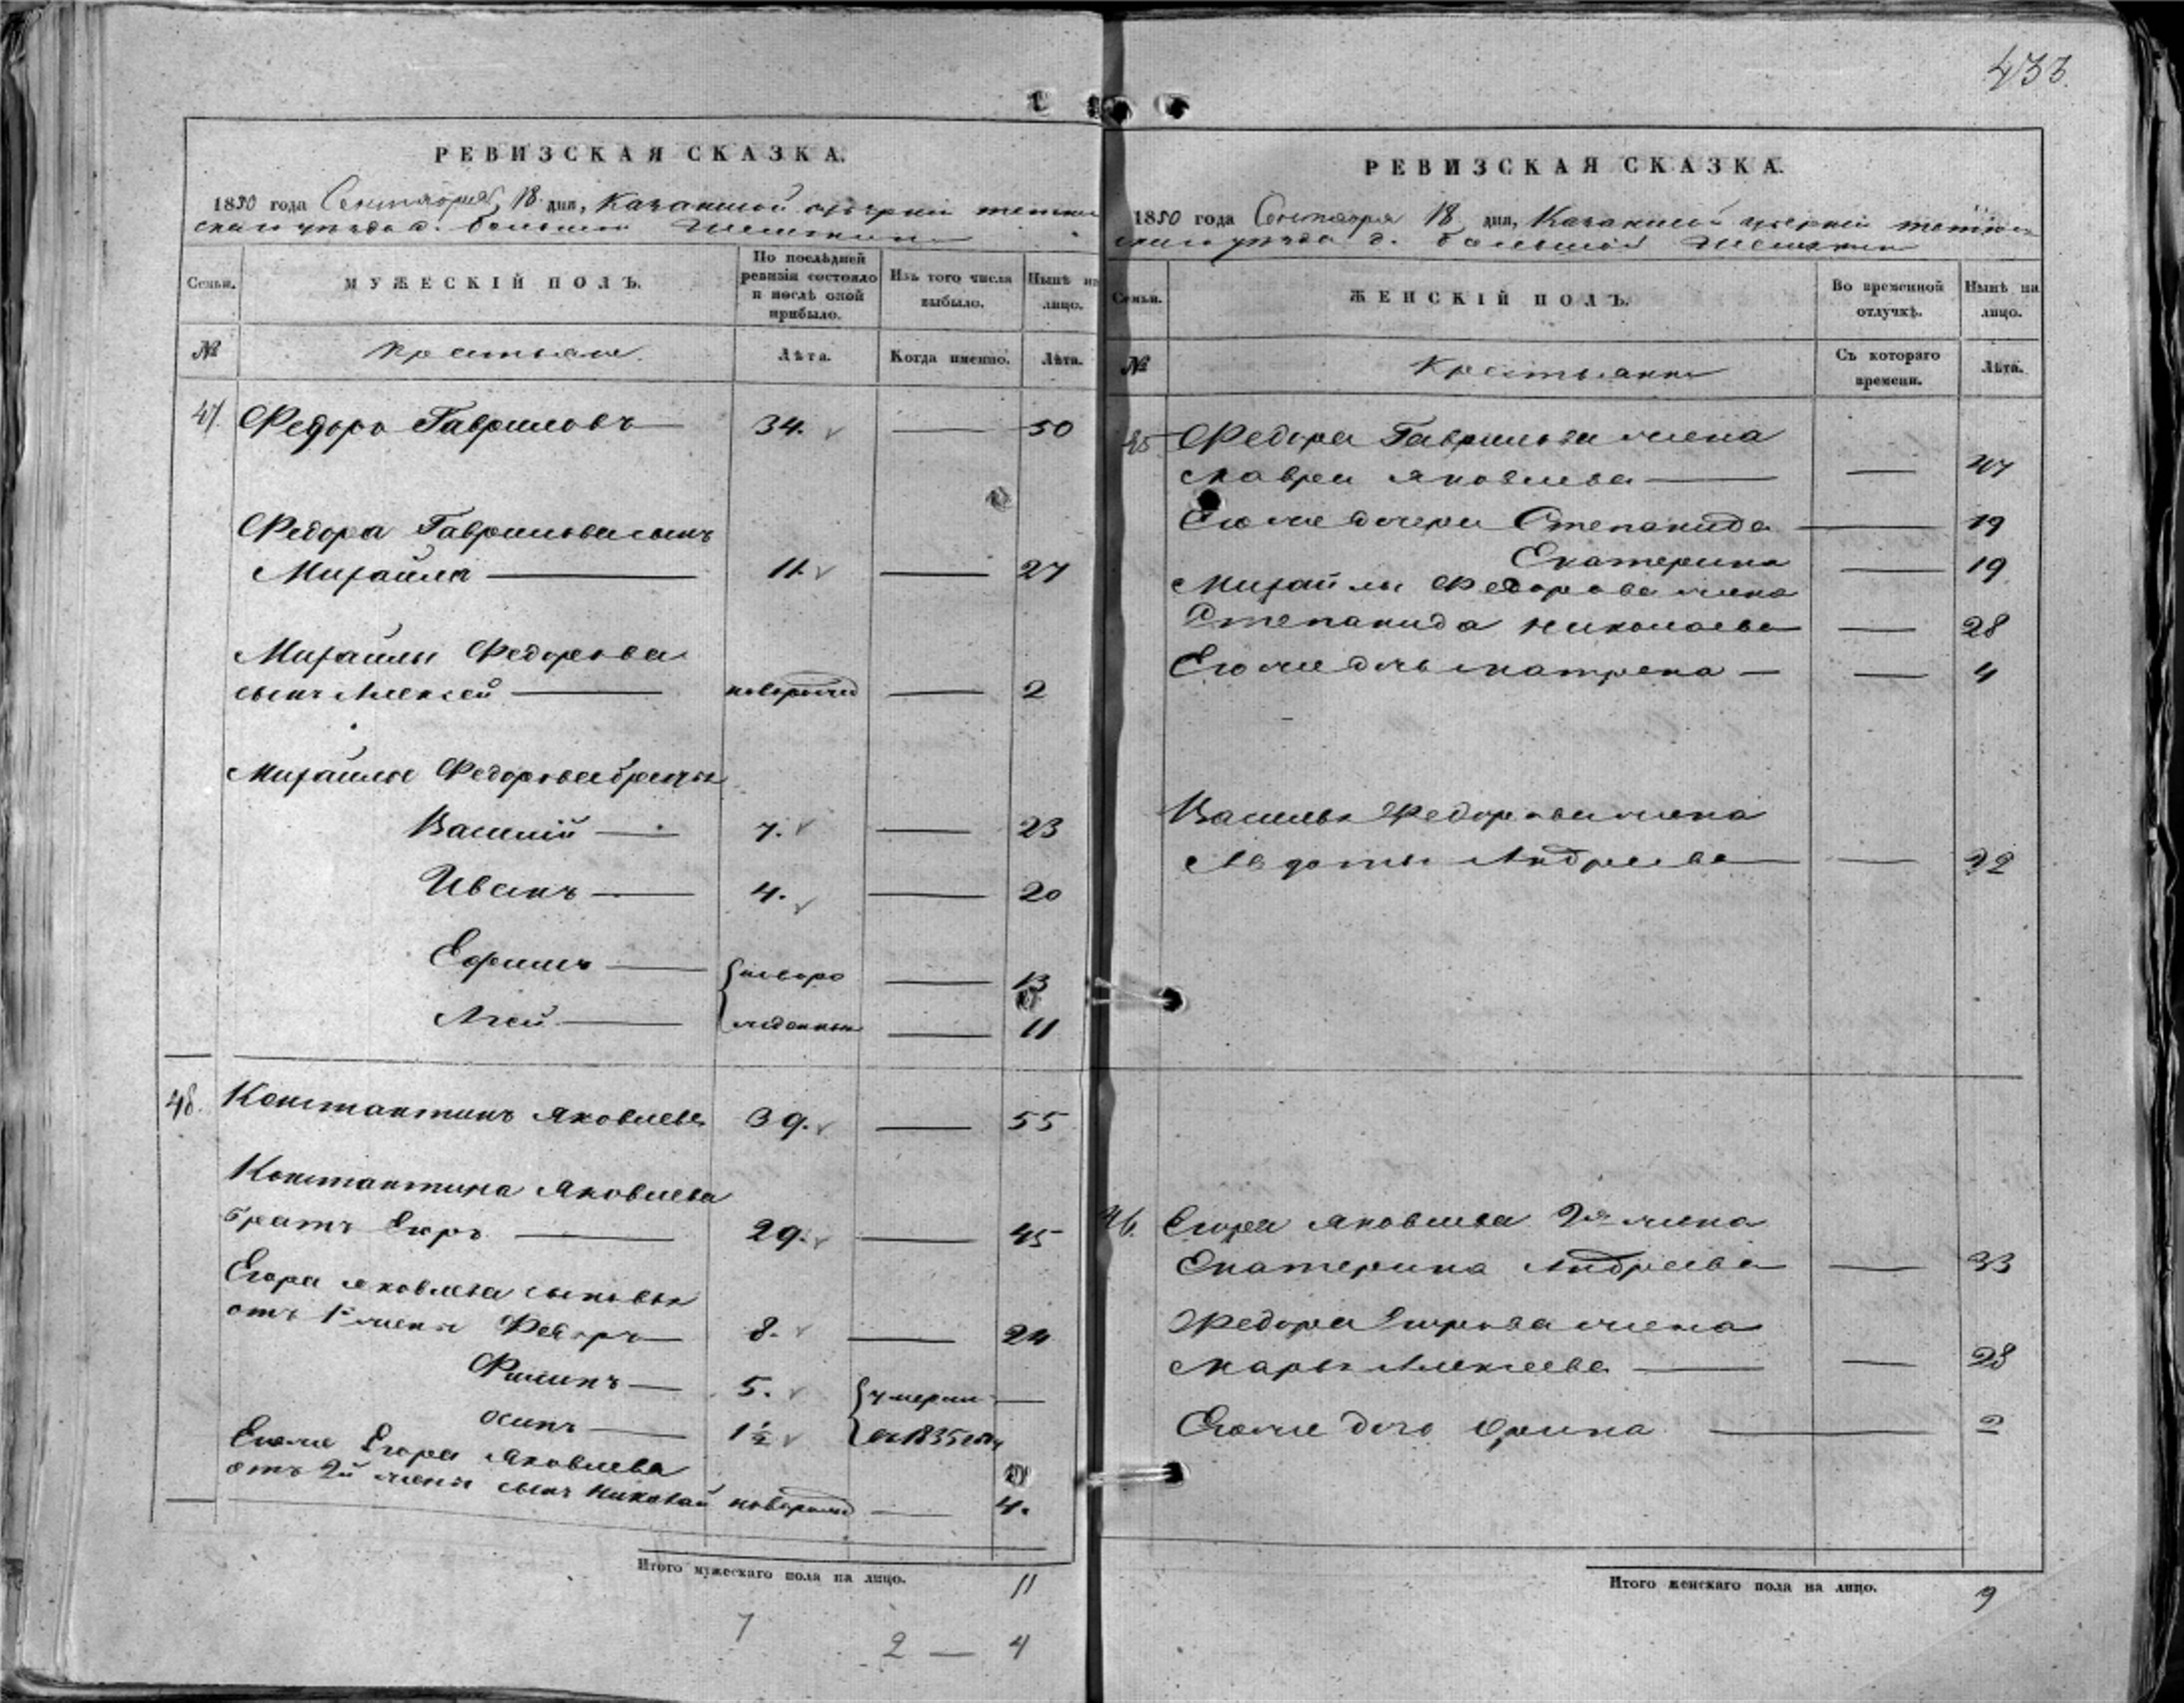 433.
РЕВИЗСКАЯ СКАЗКА.
1850 года Сентября 18 дня, Казанской губернии тетюш
скаго уѣзда д. большой
Семьи.
МУЖЕСКІЙ ПОЛЪ.
По послѣдней ревизіи состояло и послѣ оной прибыло.
Изъ того числа выбыло.
Нынѣ на лицо.
№
Крестьяне.
Лѣта.
Когда именно.
Лѣта.
47. Федоръ Гавриловъ 34. 50
Федора Гаврилова сынъ
Михайла 11. 27
Михайлы Федорова
сынъ Алексей новорожд 2
Михайлы Федорова братья
Василій 7. 23
Иванъ 4. 20
Ефимъ новоро 13
Агей жденныи 11
48. Константинъ Яковлевъ 39. 55
Константина Яковлева
братъ Егоръ 29. 45
Егора Яковлева сыновья
отъ 1й жены Федоръ 8. 24
Филипъ 5. умерли
Осипъ 1 1/2 въ 1835 году
Егоже Егора Яковлева
отъ 2й жены сынъ Николай новорожд 4.
Итого мужескаго пола на лицо. 11
7
2 — 4
РЕВИЗСКАЯ СКАЗКА.
1850 года Сентября 18 дня, Казанской губерніи тетюш
скаго уѣзда д. большой
Семьи.
ЖЕНСКІЙ ПОЛЪ.
Во временной отлучкѣ.
Нынѣ на лицо.
№
Крестьянки
Съ котораго времени.
Лѣта.
45 Федора Гаврилова жена
Мавра Яковлева 47
Егоже дочери Степанида 19
Екатерина 19
Михайлы Федорова жена
Степанида Николаева 28
Егоже дочь Матрена 4
Василья Федорова жена
Авдотья Андреева 22
46. Егора Яковлева 2я жена
Екатерина Андреева 33
Федора Егорова жена
Марья Алексеева 28
Егоже дочь Орина 2
Итого женскаго пола на лицо. 9